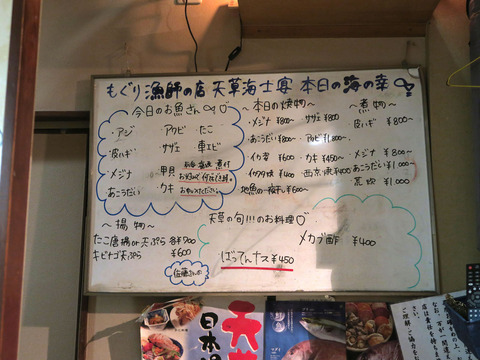 もぐり漁師の店 天草海士宴 本日の海の幸
今日のお魚さん
・アジ アワビ たこ
・皮ハギ サザエ 車エビ
・メジナ 甲貝
・あこうだい ウキ
お好みで何なりとお申しつけ下さい。
〜本日の焼物〜
・メジナ ¥800〜 サザエ ¥800〜
・あこうだい ¥800〜 アワビ ¥1,800〜
・イカ ¥600 ウキ ¥450〜
・イワシ焼 ¥400 西京焼 ¥400
・地魚の一夜干し ¥600〜
〜煮物〜
皮ハギ ¥800〜
メジナ ¥800〜
あこうだい ¥1,000〜
荒炊 ¥1,000
〜揚物〜
たこ唐揚or天ぷら 各¥700
キビナゴ天ぷら ¥600
天草の旬!!!のお料理♡
ばってんナス ¥450
メカブ酢 ¥400
日本